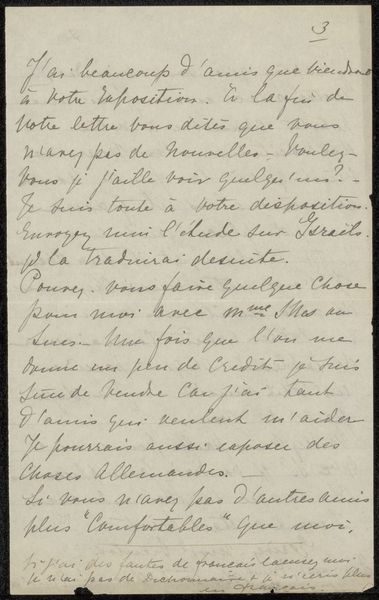 3
J'ai beaucoup d'amis que viendront
à votre exposition. À la fin de
votre lettre vous dites que vous
n'avez pas de nouvelles – Voulez-
vous je j'aille voir quelges'uns? –
Je suis toute à votre disposition.
Envoyez moi l'étude sur Israëls.
je la traduirai desuite.
Pouvez-vous faire quelque chose
pour moi avec Mme
suis – Une fois que l'on me
donne un peu de credit je suis
sûre de vendre car j'ai tant
d'amis qui veulent m'aider
Je pourrais aussi exposer des
choses Allemandes. –
Si vous n'avez pas d'autres amis
plus "Comfortables" que moi.
Si j'ai des fautes de français excusez moi
je n'ai pas de Dictionnaire & je n'ecris plus
en français.